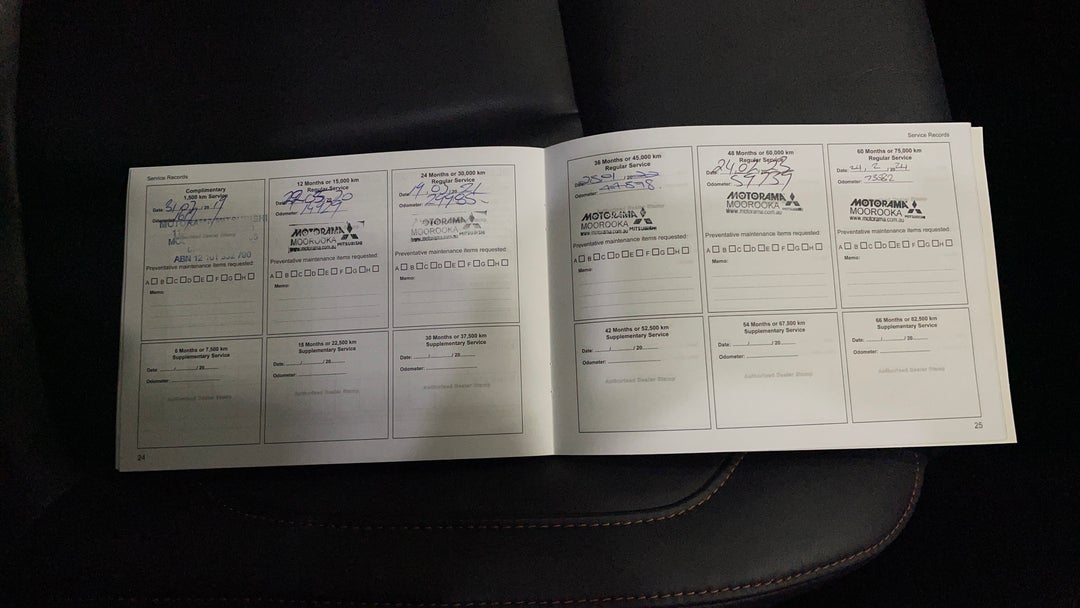 Service Records
Complimentary
1,500 km Service
Date: 31
Odometer:
Authorised Dealer Stamp
ABN 12
Preventative maintenance items requested:
A □ B □ C □ D □ E □ F □ G □ H □
Memo:
12 Months or 15,000 km
Regular Service
Date:
Odometer:
MOTORAMA
MOOROOKA MITSUBISHI
www.motorama.com.au
Preventative maintenance items requested:
A □ B □ C □ D □ E □ F □ G □ H □
Memo:
24 Months or 30,000 km
Regular Service
Date: 19
Odometer: 29985
MOTORAMA
MOOROOKA MITSUBISHI
Preventative maintenance items requested:
A □ B □ C □ D □ E □ F □ G □ H □
Memo:
6 Months or 7,500 km
Supplementary Service
Date: / / 20
Odometer:
Authorised Dealer Stamp
18 Months or 22,500 km
Supplementary Service
Date: / / 20
Odometer:
Authorised Dealer Stamp
30 Months or 37,500 km
Supplementary Service
Date: / / 20
Odometer:
24
Service Records
36 Months or 45,000 km
Regular Service
Date:
Odometer:
MOTORAMA
MOOROOKA MITSUBISHI
www.motorama.com.au
Preventative maintenance items requested:
A □ B □ C □ D □ E □ F □ G □ H □
Memo:
48 Months or 60,000 km
Regular Service
Date: 24, 02, 23
Odometer: 59739
MOTORAMA
MOOROOKA MITSUBISHI
www.motorama.com.au
Preventative maintenance items requested:
A □ B □ C □ D □ E □ F □ G □ H □
Memo:
60 Months or 75,000 km
Regular Service
Date: 21, 2, 2024
Odometer: 73582
MOTORAMA
MOOROOKA MITSUBISHI
www.motorama.com.au
Preventative maintenance items requested:
A □ B □ C □ D □ E □ F □ G □ H □
Memo:
42 Months or 52,500 km
Supplementary Service
Date: / / 20
Odometer:
Authorised Dealer Stamp
54 Months or 67,500 km
Supplementary Service
Date: / / 20
Odometer:
Authorised Dealer Stamp
66 Months or 82,500 km
Supplementary Service
Date: / / 20
Odometer:
Authorised Dealer Stamp
25